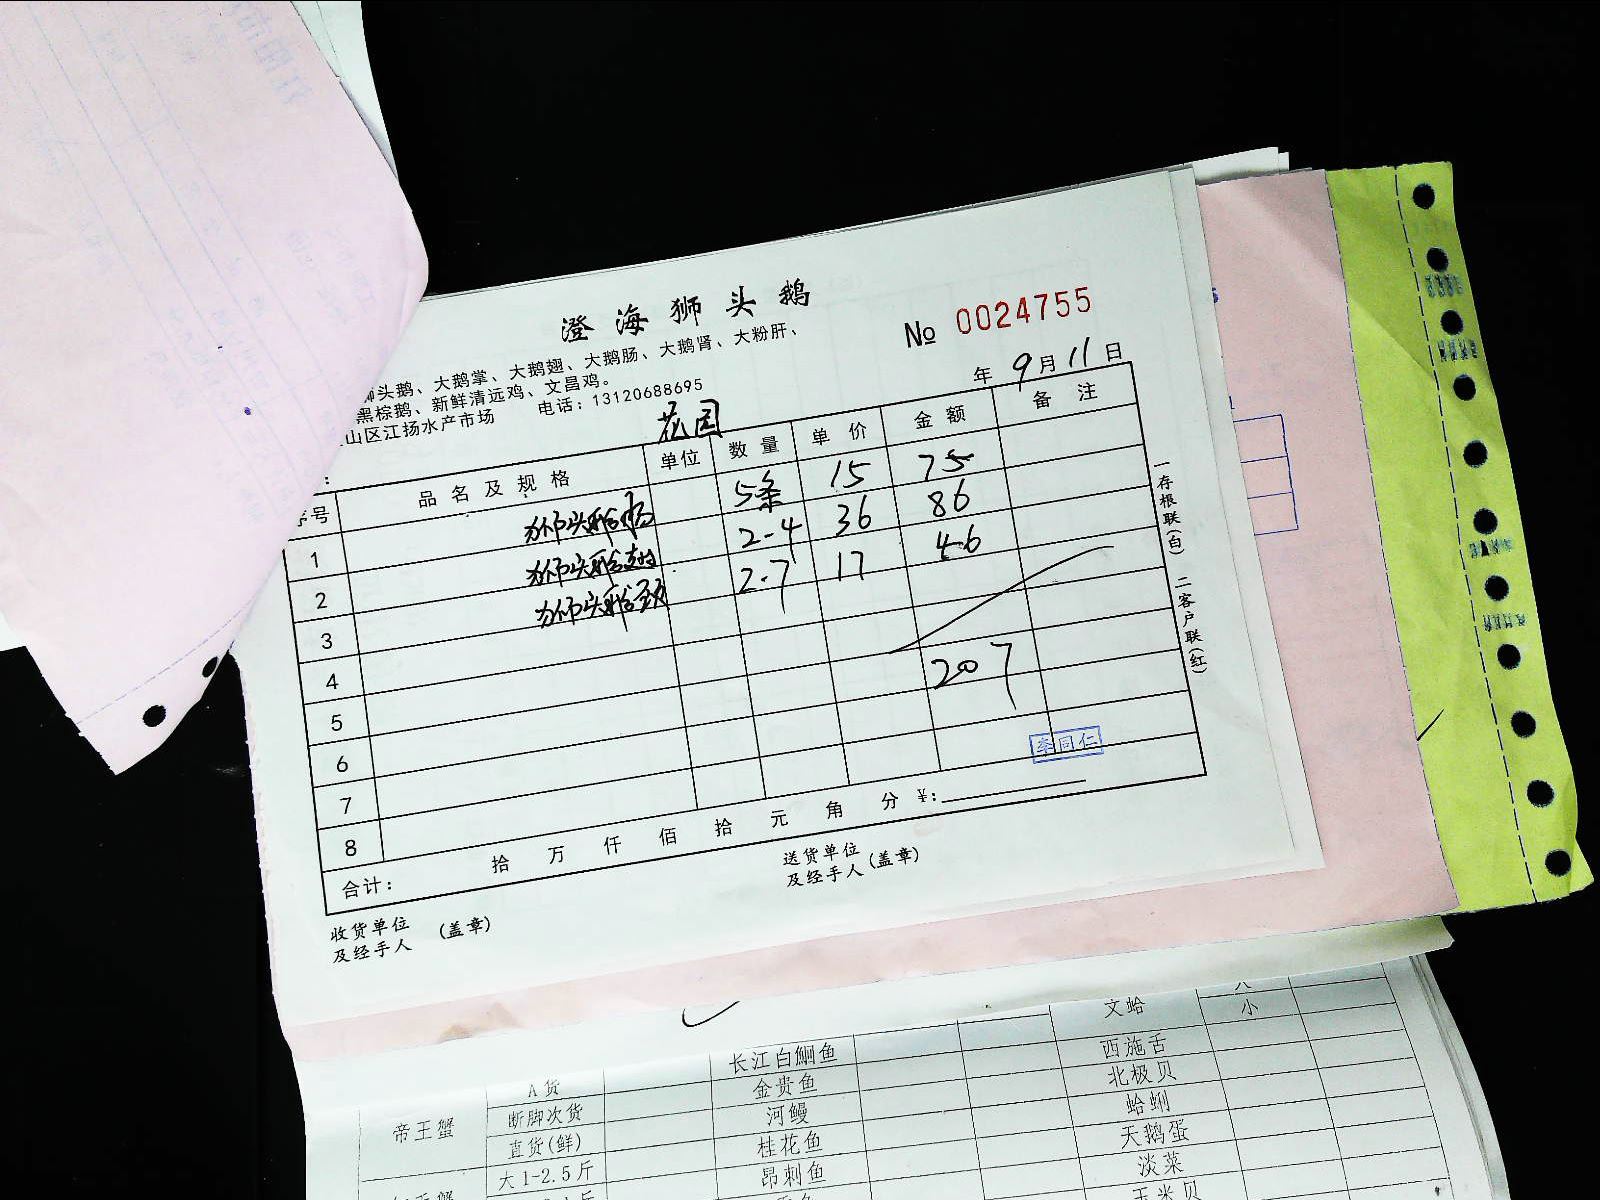 澄海狮头鹅
No 0024755
狮头鹅、大鹅掌、大鹅翅、大鹅肠、大鹅肾、大粉肝、
黑棕鹅、新鲜清远鸡、文昌鸡。
山区江扬水产市场 电话：13120688695
年 9 月 11 日
花园
序号 品名及规格 单位 数量 单价 金额 备注
1 狮头鹅肠 5条 15 75
2 狮头鹅 2-4 36 86
3 狮头鹅颈 2.7 17 46
4
5 207
6
7
8
李同仁
合计： 拾 万 仟 佰 拾 元 角 分 ¥：
收货单位
及经手人 （盖章）
送货单位
及经手人（盖章）
一存根联（白） 二客户联（红）
文蛤 小
长江白鮰鱼 西施舌
帝王蟹 A货 金贵鱼 北极贝
断脚次货 河鳗 蛤蜊
直货(鲜) 桂花鱼 天鹅蛋
大1-2.5斤 昂刺鱼 淡菜
玉米贝